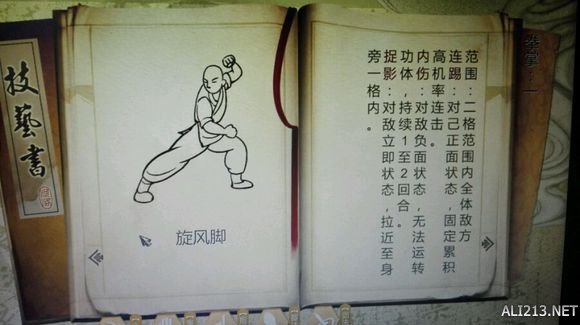 技藝書
旋风脚
拳掌：一
范围：二格范围内全体敌方
连踢：对己正面状态，固定累积
高机率连击。
内伤：对敌负面状态，无法运转
功体，持续1至2回合。
捉影：对敌立即状态，拉近至身
旁一格内。
ALI213.NET